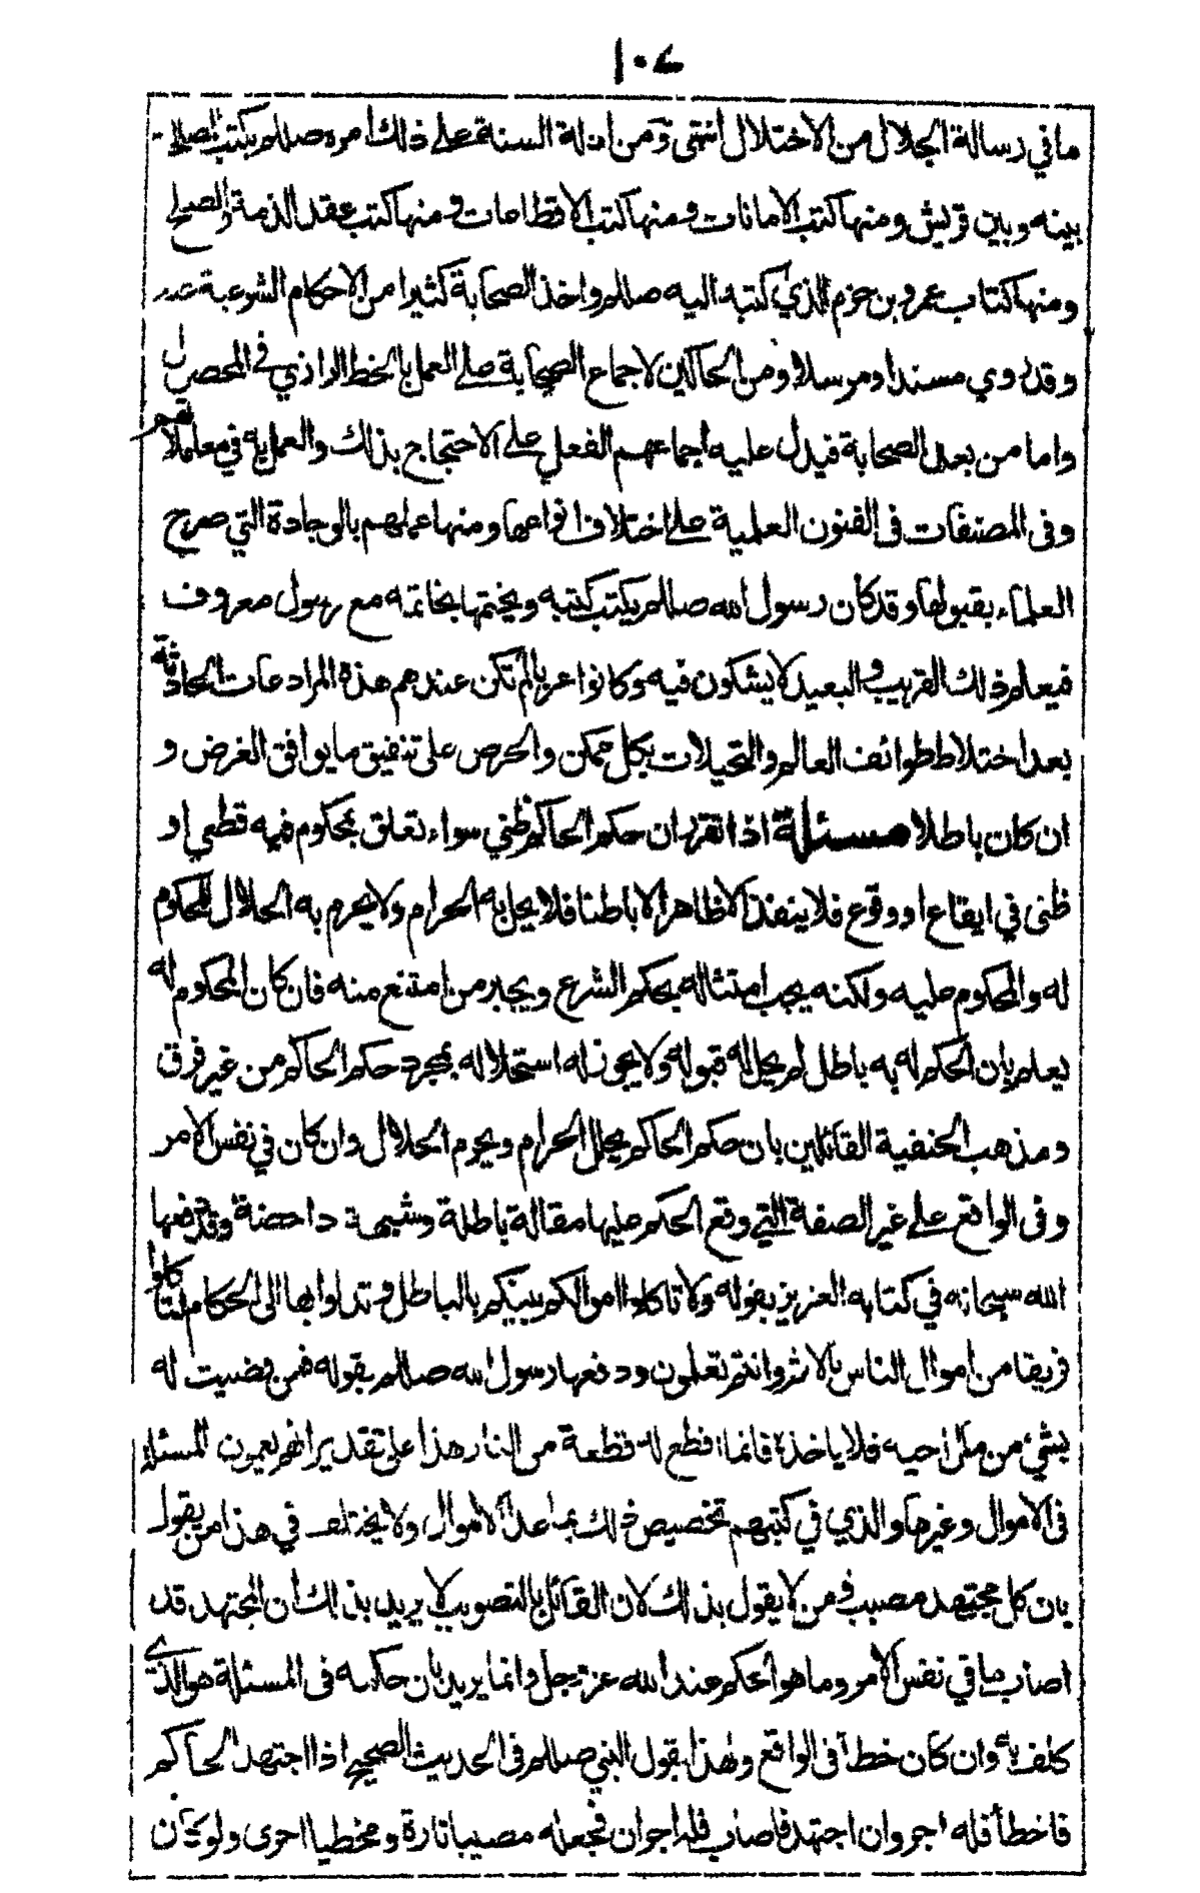 ١٠٧
ما في رسالة الجلال من الاختلال انتهى ومن ادلة السنة على ذلك امره صللم بكتب الصلح
بينه وبين قريش ومنها كتب الامانات ومنها كتب الاقطاعات ومنها كتب عقد الذمة والصلح
ومنها كتاب عمرو بن حزم الذي كتبه اليه صللم واخذ الصحابة كثيرا من الاحكام الشرعية
وقد روي مسندا ومرسلا ومن الحاكين لاجماع الصحابة على العمل بالخط الرازي في المحصول
واما من بعد الصحابة فيدل عليه اجماعهم الفعلي على الاحتجاج بذلك والعمل به في معاملاتهم
وفي المصنفات في الفنون العلمية على اختلاف انواعها ومنها عملهم بالوجادة التي صرح
العلماء بقبولها وقد كان رسول الله صللم يكتب كتبه ويختمها بخاتمه مع رسول معروف
فيعلم ذلك القريب والبعيد لا يشكون فيه وكانوا عربا لم تكن عندهم هذه المرادعات الحادثة
بعد اختلاط طوائف العالم والتحيلات بكل ممكن والحرص على تنفيق ما يوافق الغرض و
ان كان باطلا مسئلة اذا تقرر ان حكم الحاكم ظني سواء تعلق بمحكوم فيه قطعي او
ظني في ايقاع او وقوع فلا ينفذ الا ظاهرا لا باطنا فلا يحل به الحرام ولا يحرم به الحلال للمحكوم
له والمحكوم عليه ولكنه يجب امتثاله بحكم الشرع ويجبر من امتنع منه فان كان المحكوم له
يعلم بان الحكم له به باطل لم يحل له قبوله ولا يجوز له استحلاله بمجرد حكم الحاكم من غير فرق
ومذهب الحنفية القائلين بان حكم الحاكم يحلل الحرام ويحرم الحلال وان كان في نفس الامر
وفي الواقع على غير الصفة التي وقع الحكم عليها مقالة باطلة وشبهة داحضة وقد دفعها
الله سبحانه في كتابه العزيز بقوله ولا تاكلوا اموالكم بينكم بالباطل وتدلوا بها الى الحكام لتاكلوا
فريقا من اموال الناس بالاثم وانتم تعلمون ودفعها رسول الله صللم بقوله فمن قضيت له
بشيء من مال اخيه فلا ياخذه فانما اقطع له قطعة من النار هذا على تقدير انهم يعمون المسئلة
في الاموال وغيرها والذي في كتبهم تخصيص ذلك بما عدا الاموال ولا يختلف في هذا من يقول
بان كل مجتهد مصيب ومن لا يقول بذلك لان القائل بالتصويب لا يريد بذلك ان المجتهد قد
اصاب ما في نفس الامر وما هو الحكم عند الله عز وجل وانما يريد بان حكمه في المسئلة هو الذي
كلف به وان كان خطأ في الواقع ولهذا يقول النبي صللم في الحديث الصحيح اذا اجتهد الحاكم
فاخطأ فله اجر وان اجتهد فاصاب فله اجران فجعله مصيبا تارة ومخطيا اخرى ولو كان